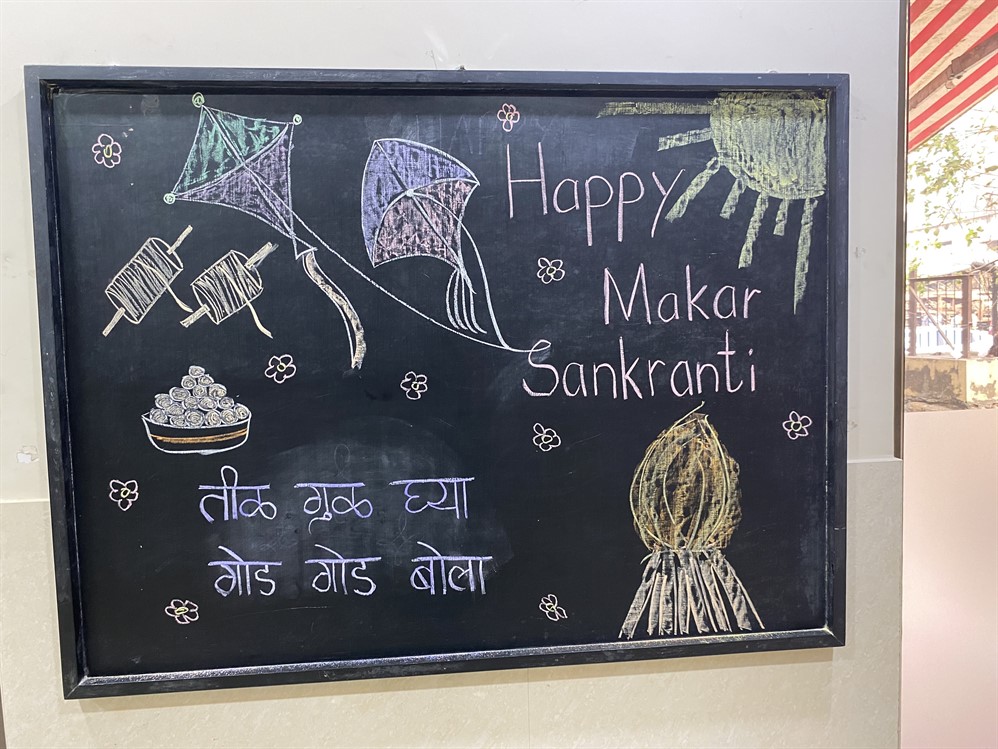 Happy
Makar
Sankranti
तीळ गुळ घ्या
गोड गोड बोला